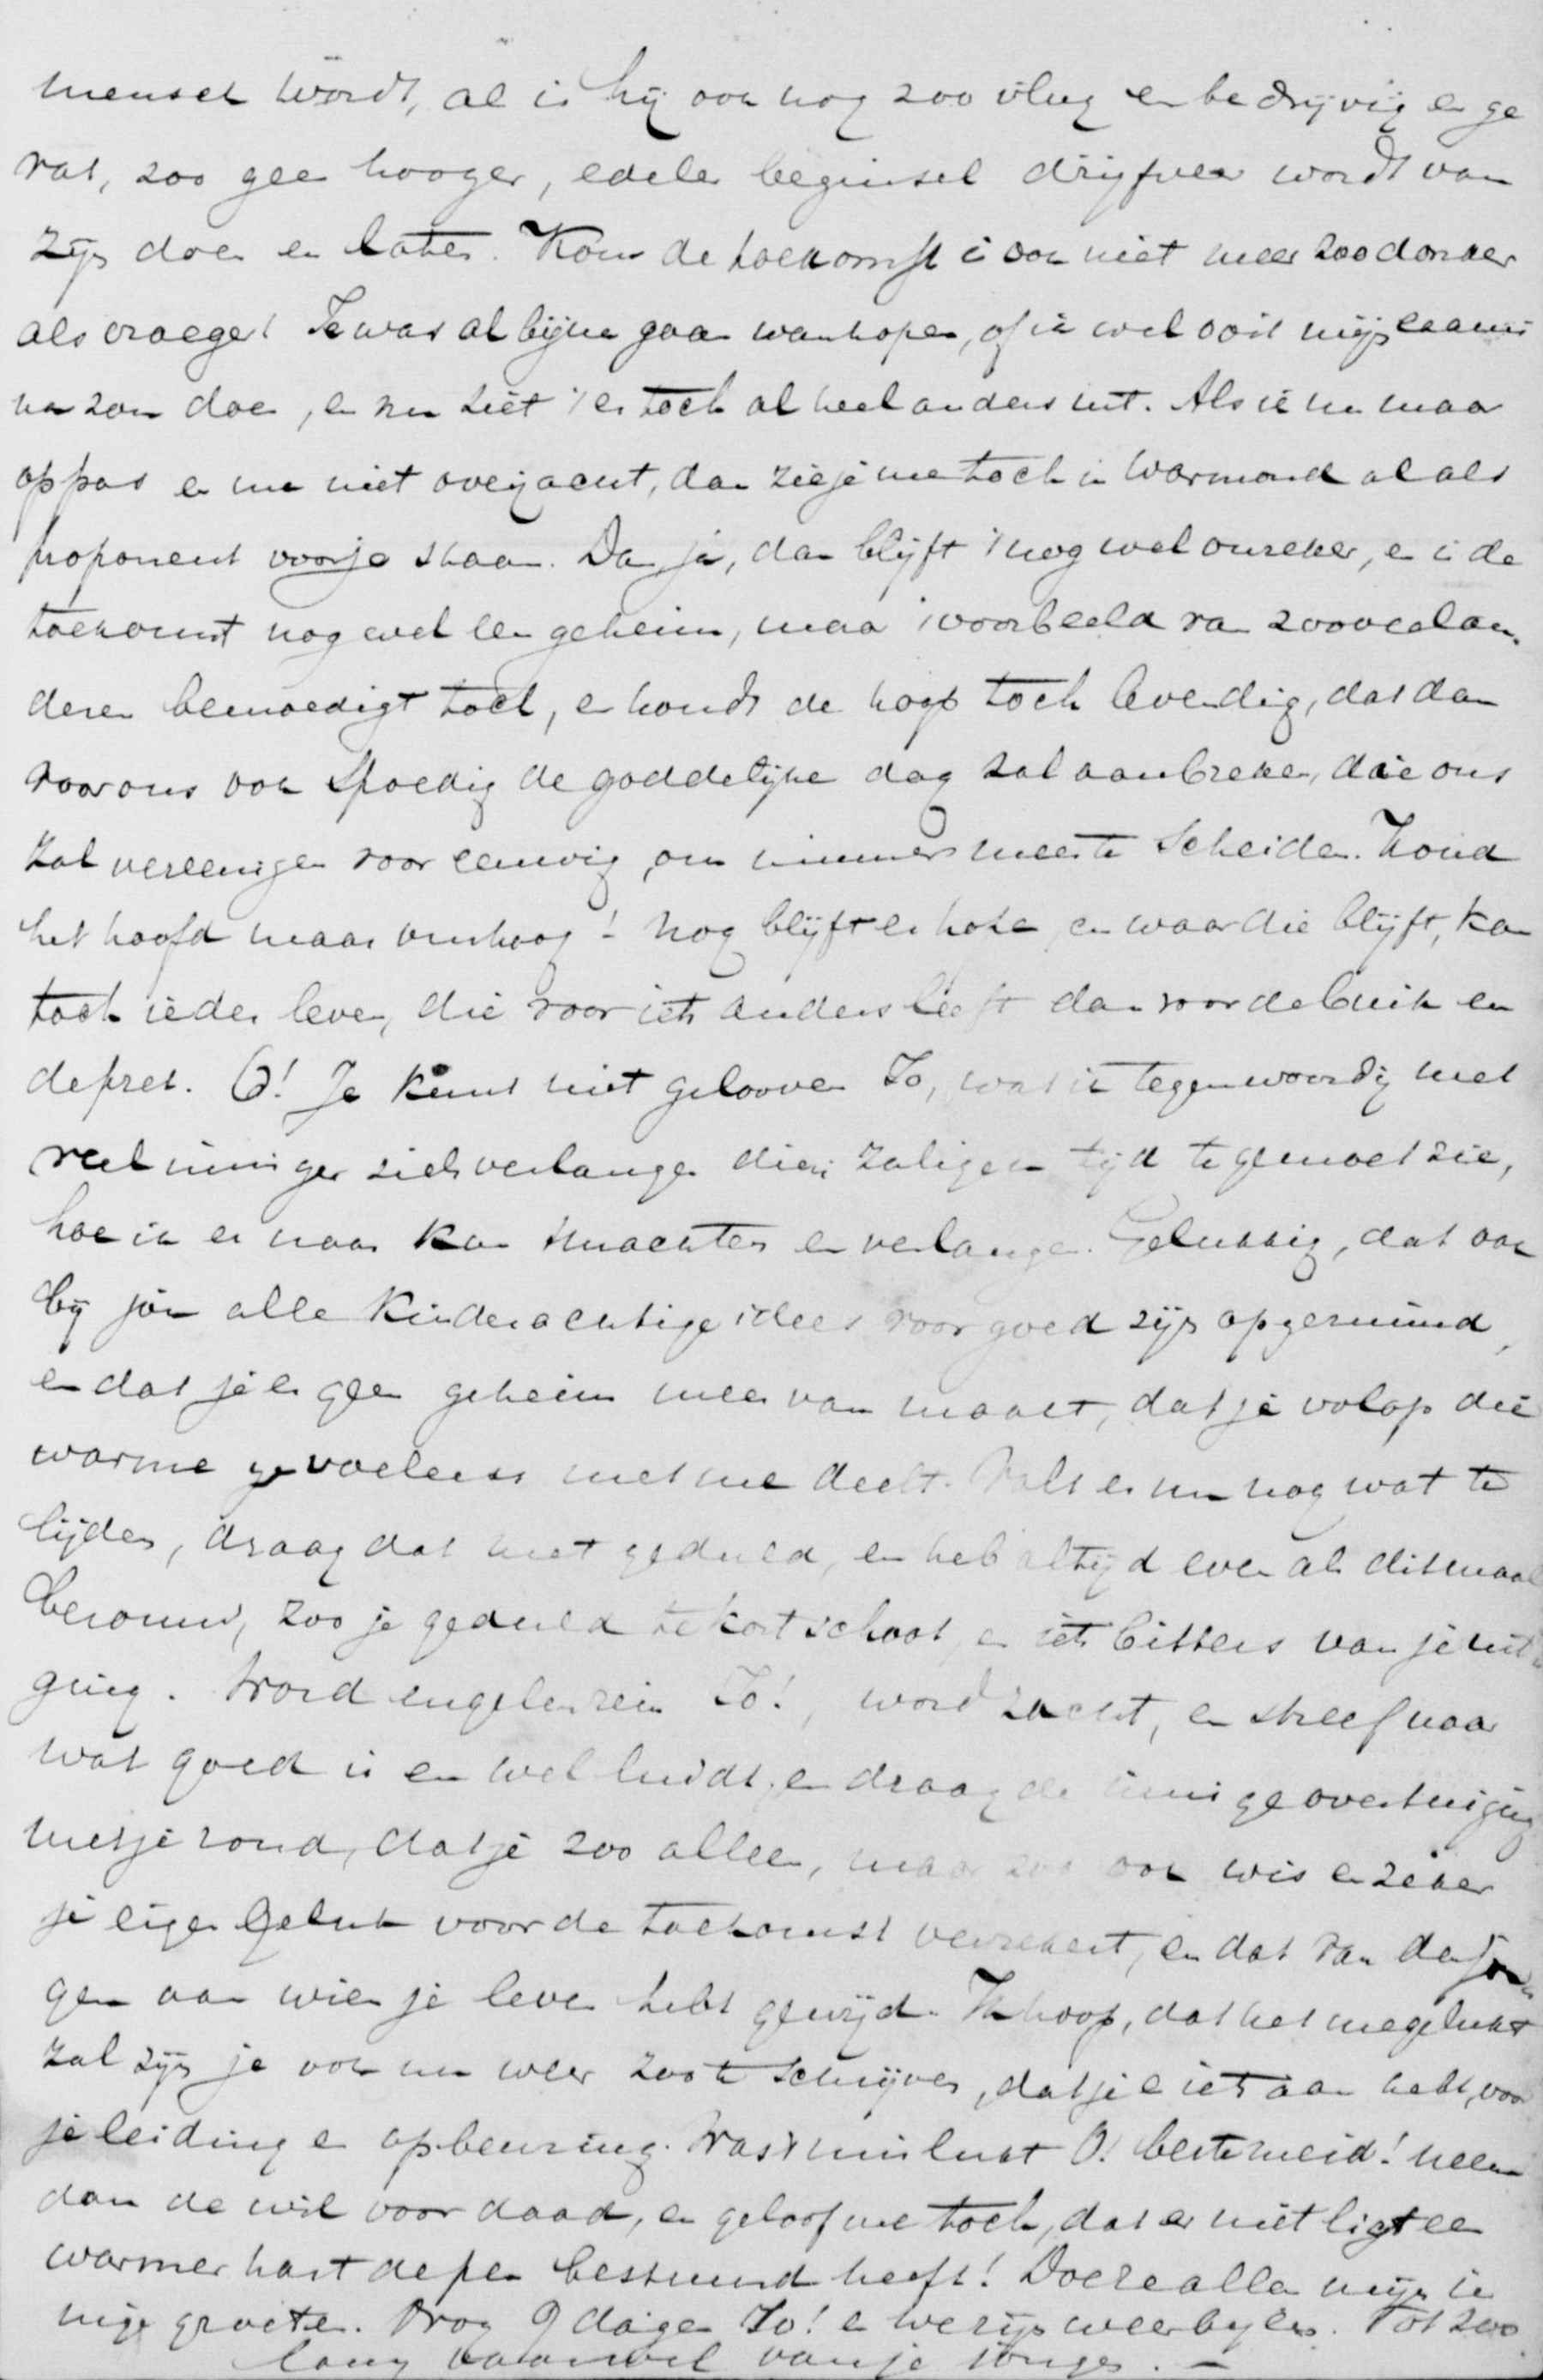 mensch wordt, al is hij ook nog zoo vlug en bedrijvig en ge
vat, zoo geen hooger, edeler beginsel drijfveer wordt van
zijn doen en laten. Kom de toekomst is ook niet meer zoo donker
als vroeger! Ik was al bijna gaan wanhopen, of ik wel ooit mijn examen
na zou doen, en nu ziet 't er toch al heel anders uit. Als ik nu maar
oppas en me niet overjaent, dan zie je me toch in Warmond al als
proponent voor je staan. Dan ja, dan blijft 't nog wel onzeker, en is de
toekomst nog wel een geheim, maar 't voorbeeld van zooveel an-
deren bemoedigt toch, en houdt de hoop toch levendig, dat dan
voor ons ook spoedig de goddelijke dag zal aanbreken, die ons
zal vereenigen voor eeuwig, om nimmer meer te scheiden. Houd
het hoofd maar omhoog! nog blijft er hope, en waar die blijft, kan
toch ieder leven, die voor iets anders leeft dan voor de buik en
de pret. O! Je kunt niet gelooven Jo, wat ik tegenwoordig met
veel inniger zielsverlangen dien zaligen tijd te gemoet zie,
hoe ik er naar kan smachten en verlangen. Gelukkig, dat ook
bij jou alle kinderachtige idees voor goed zijn opgeruimd,
en dat je er geen geheim meer van maakt, dat je volop die
warme gevoelens met me deelt. Valt er nu nog wat te
lijden, draag dat met geduld, en heb altijd even als ditmaal
berouw, zoo je geduld te kort schoot, en iets bitters van je uit
ging. Word engelenrein Jo!, word zacht, en streef naar
wat goed is en wel luidt, en draag de innige overtuiging
met je rond, dat je zoo alleen, maar zoo ook wis en zeker
je eigen geluk voor de toekomst verzekert, en dat van den jon-
gen aan wien je leven hebt gewijd. Ik hoop, dat het me gelukt
zal zijn je ook nu weer zoo te schrijven, dat je er iets aan hebt, voor
je leiding en opbeuring. Was 't mislukt O! beste meid! neem
dan de wil voor daad, en geloof me toch, dat er niet ligt een
warmer hart de pen bestuurd heeft! Doe ze allen mijn in
nige groeten. Nog 9 dagen Jo! en we zijn weer bijeen. Tot zoo
lang vaarwel van je jongen. -